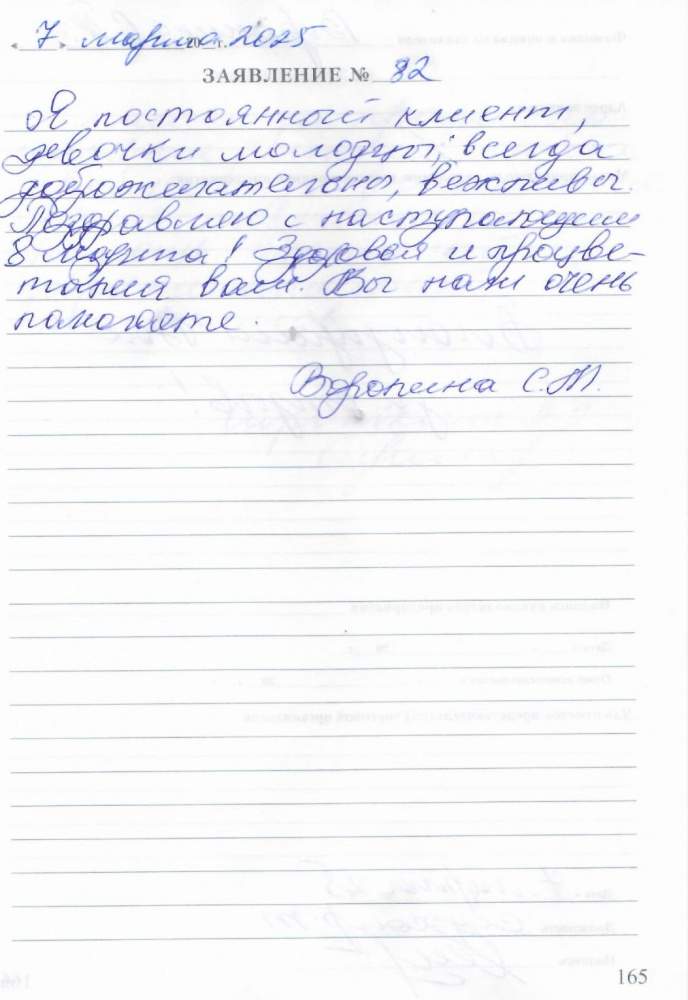 « 7 » марта 2025 г.
ЗАЯВЛЕНИЕ № 82
Я постоянный клиент,
девочки молодцы, всегда
доброжелательны, вежливы.
Поздравляю с наступающим
8 Марта! Здоровья и процве-
тания вам. Вы нам очень
помогаете.
Воронина С.М.
165